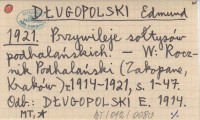 DŁUGOPOLSKI Edmund
1921. Przywileje sołtysów
podhalańskich. - W: Rocz-
nik Podhalański (Zakopane,
Kraków) r. 1914-1921, s. 1-47.
Odb.: DŁUGOPOLSKI E. 1914.
MT, *